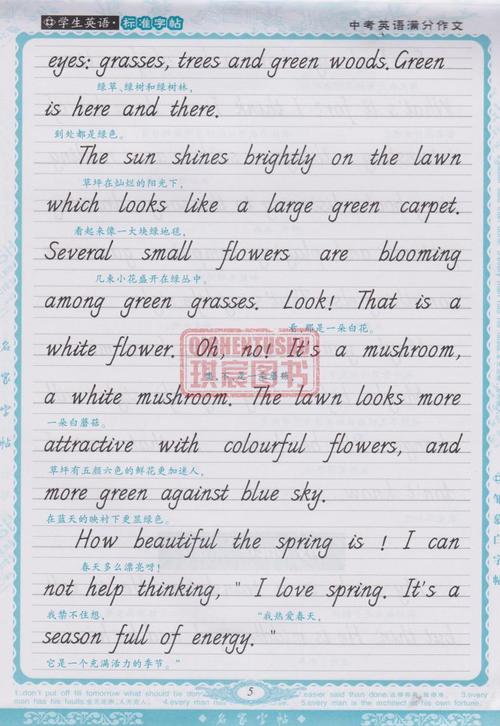 中学生英语·标准字帖
中考英语满分作文
eyes: grasses, trees and green woods. Green
绿草、绿树和绿树林,
is here and there.
到处都是绿色。
The sun shines brightly on the lawn
草坪在灿烂的阳光下,
which looks like a large green carpet.
看起来像一大块绿地毯,
Several small flowers are blooming
几朵小花盛开在绿丛中,
among green grasses. Look! That is a
看,那是一朵白花。
white flower. Oh, no! It's a mushroom,
噢,不,是一朵蘑菇
QICHENTUSHU
琪宸图书
a white mushroom. The lawn looks more
一朵白蘑菇。
attractive with colourful flowers, and
草坪有五颜六色的鲜花更加迷人,
more green against blue sky.
在蓝天的映衬下更显绿色。
How beautiful the spring is ! I can
春天多么漂亮呀!
not help thinking, " I love spring. It's a
我禁不住想, "我热爱春天,
season full of energy. "
它是一个充满活力的季节。"
名家字帖
1.don't put off till tomorrow what should be don
easier said than done.
man has his faults
4.every man
5.every man is the architect of his own fortune.
5
名家字帖